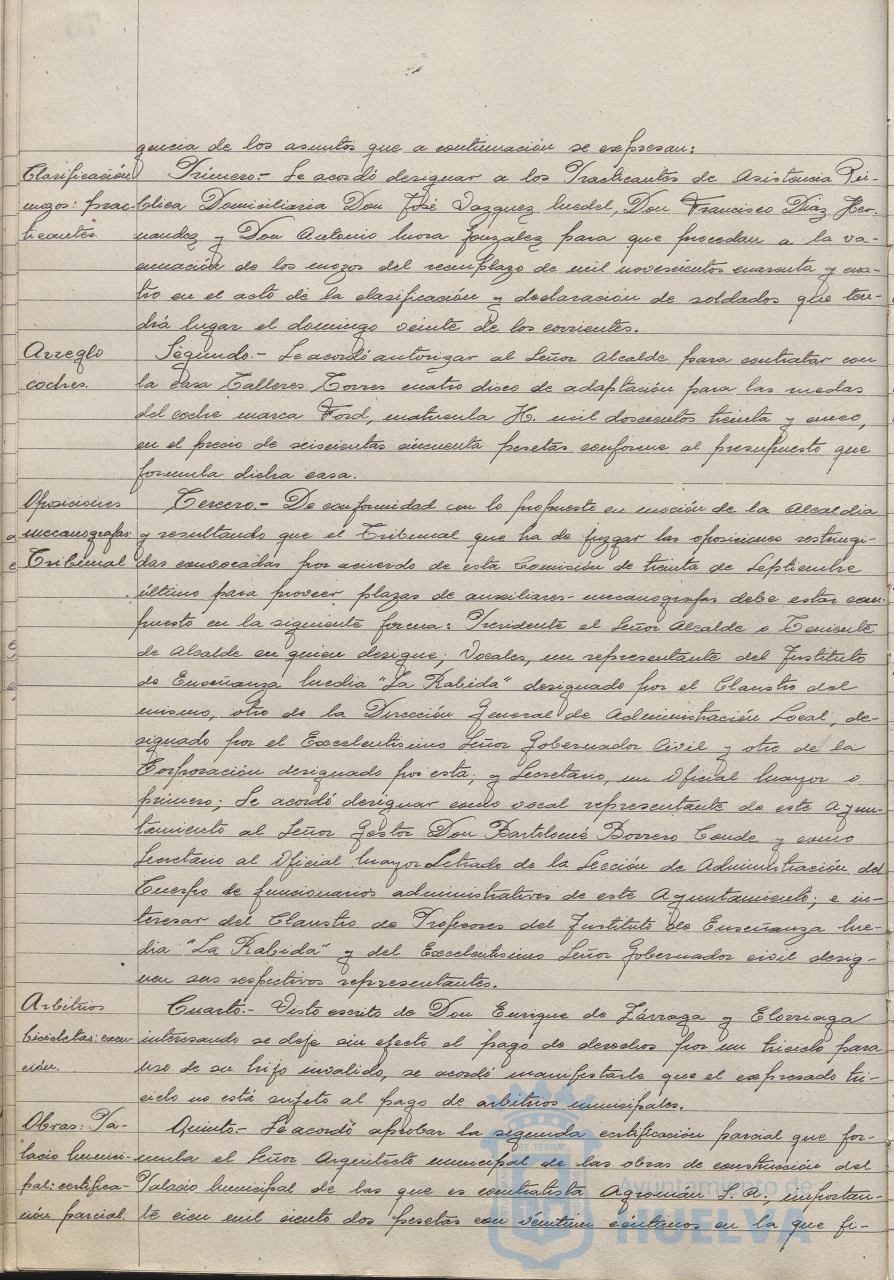 gencia de los asuntos que a continuación se expresan:
Clasificación mozos: practicantes.
Primero.- Se acordó designar a los Practicantes de Asistencia Pú-
blica Domiciliaria Don José Vazquez Medel, Don Francisco Díaz Her-
nandez y Don Antonio Mora Gonzalez para que procedan a la va-
cunación de los mozos del reemplazo de mil novecientos cuarenta y cua-
tro en el acto de la clasificación y declaración de soldados que ten-
drá lugar el domingo veinte de los corrientes.
Arreglo coches.
Segundo.- Se acordó autorizar al Señor Alcalde para contratar con
la casa Talleres Torres cuatro disco de adaptación para las ruedas
del coche marca Ford, matricula H. mil doscientos treinta y cinco,
en el precio de seiscientas cincuenta pesetas conforme al presupuesto que
formula dicha casa.
Oposiciones mecanografas: Tribunal.
Tercero.- De conformidad con lo propuesto en moción de la Alcaldia
y resultando que el Tribunal que ha de juzgar las oposiciones restringi-
das convocadas por acuerdo de esta Comisión de treinta de Septiembre
último para proveer plazas de auxiliares-mecanografas debe estar com-
puesto en la siguiente forma: Presidente el Señor Alcalde o Teniente
de Alcalde en quien designe; Vocales, un representante del Instituto
de Enseñanza Media "La Rabida" designado por el Claustro del
mismo, otro de la Dirección General de Administración Local, de-
signado por el Excelentisimo Señor Gobernador Civil y otro de la
Corporación designado por esta; y Secretario, un Oficial Mayor o
primero; Se acordó designar como vocal representante de este Ayun-
tamiento al Señor Gestor Don Bartolomé Borrero Conde y como
Secretario al Oficial Mayor Letrado de la Sección de Administración del
Cuerpo de funcionarios administrativos de este Ayuntamiento; e in-
teresar del Claustro de Profesores del Instituto de Enseñanza Me-
dia "La Rabida" y del Excelentisimo Señor Gobernador civil desig-
nen sus respectivos representantes.
Arbitrios bicicletas: exención.
Cuarto.- Visto escrito de Don Enrique de Zárraga y Elorriaga
interesando se deje sin efecto el pago de derechos por un triciclo para
uso de su hijo invalido, se acordó manifestarle que el expresado tri-
ciclo no está sujeto al pago de arbitrios municipales.
Obras: Palacio Municipal: certificación parcial.
Quinto.- Se acordó aprobar la segunda certificación parcial que for-
mula el Señor Arquitecto municipal de las obras de construcción del
Palacio Municipal de las que es contratista Agroman S.A. importan-
te cien mil ciento dos pesetas con veintiun céntimos en la que fi-
Ayuntamiento de
HUELVA